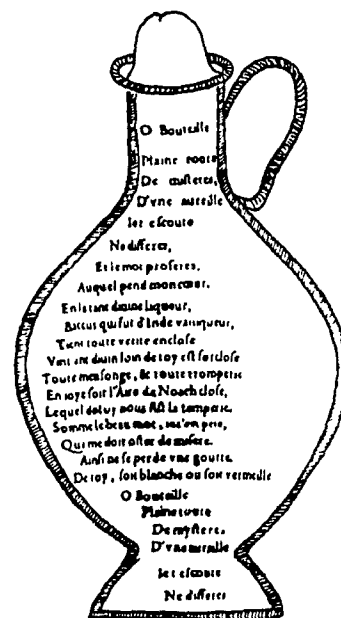 O Bouteille
Plaine toute
De misteres,
D'vne aureille
Iet escoute
Ne differes,
Et le mot proferes,
Auquel pend mon cœur.
En la tant diuine liqueur,
Baccus qui fut d'Inde vainqueur,
Tient toute verité enclose
Vant ant diuin loin de toy est forclose
Toute mensonge, & toute tromperie
En ioye soit l'Aire de Noach close,
Lequel de toy nous fist la temperie.
Somme le beau mot, ie t'en prie,
Qui me doit oster de misere.
Ainsi ne se perde vne goutte
De toy, soit blanche ou soit vermeille
O Bouteille
Plaine toute
De mysteres
D'vne aureille
Iet escoute
Ne differes